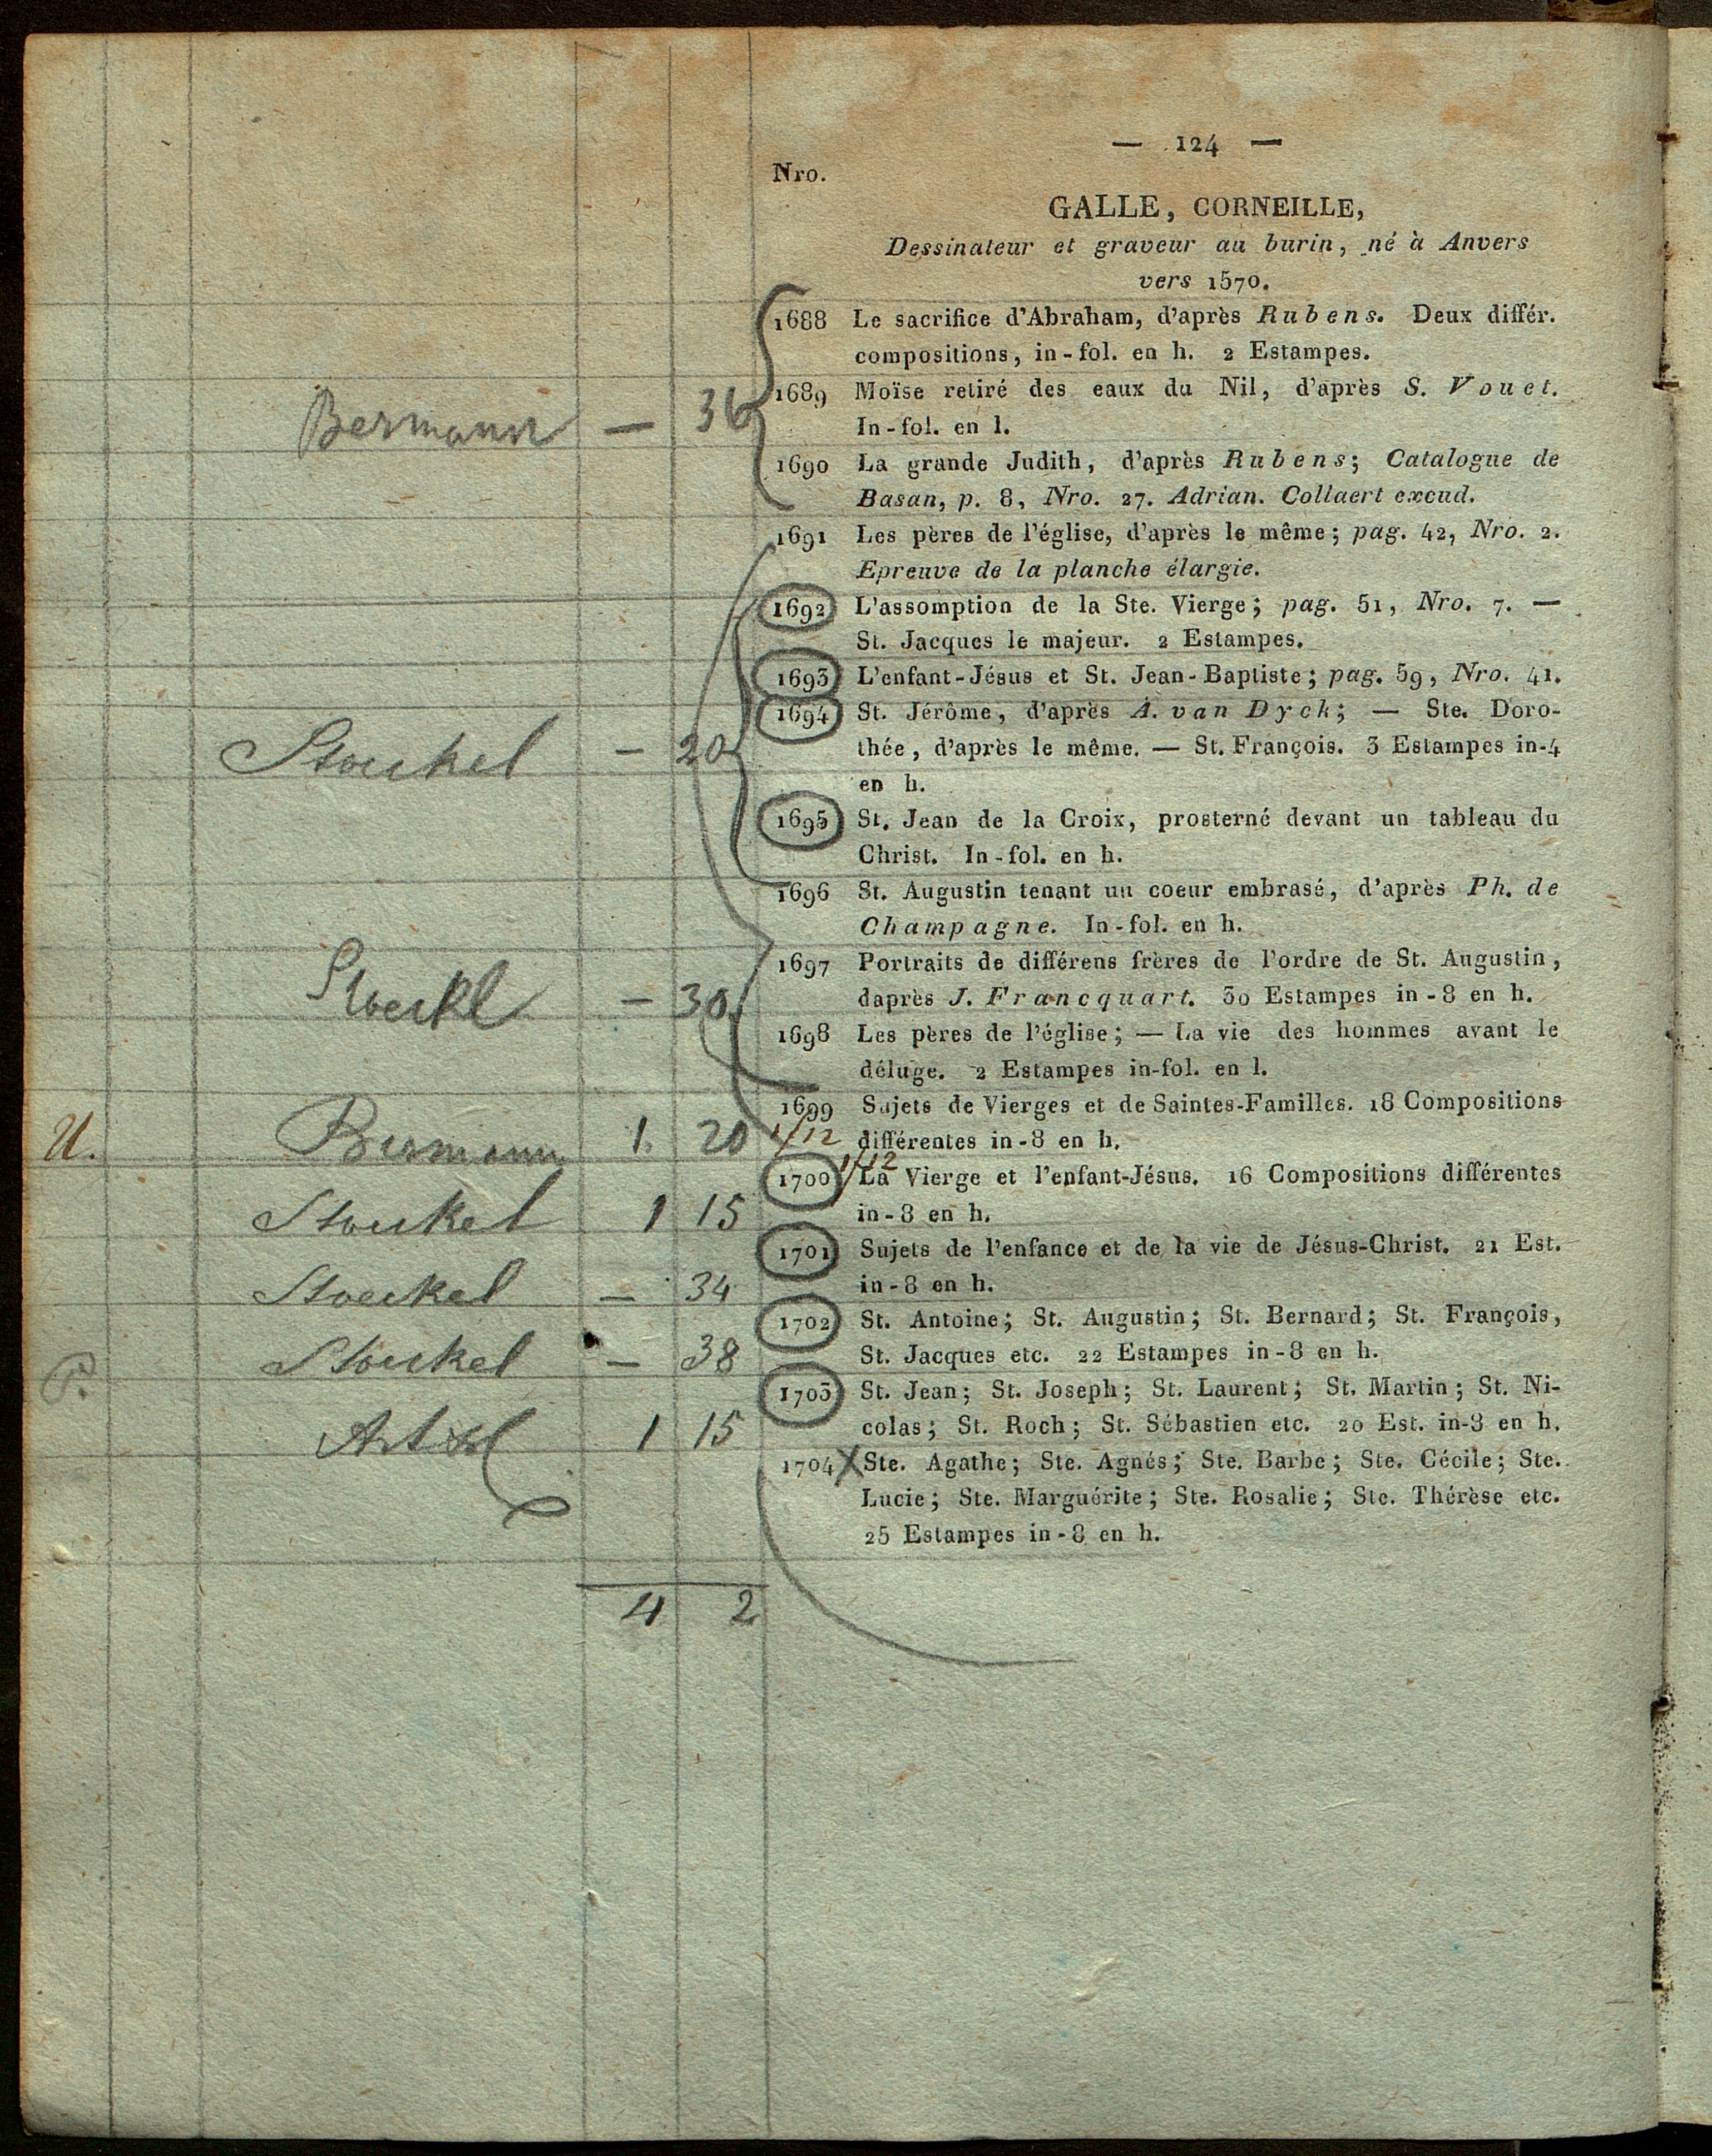 — 124 —
Nro.
GALLE, CORNEILLE,
Dessinateur et graveur au burin, né à Anvers
vers 1570.
1688 Le sacrifice d'Abraham, d'après Rubens. Deux différ.
compositions, in-fol. en h. 2 Estampes.
1689 Moïse retiré des eaux du Nil, d'après S. Vouet.
Bermann — 36
In-fol. en l.
1690 La grande Judith, d'après Rubens; Catalogue de
Basan, p. 8, Nro. 27. Adrian. Collaert excud.
1691 Les pères de l'église, d'après le même; pag. 42, Nro. 2.
Epreuve de la planche élargie.
1692 L'assomption de la Ste. Vierge; pag. 51, Nro. 7. —
St. Jacques le majeur. 2 Estampes.
1693 L'enfant-Jésus et St. Jean-Baptiste; pag. 59, Nro. 41.
1694 St. Jérôme, d'après A. van Dyck; — Ste. Doro-
Stoeckel — 20
thée, d'après le même. — St. François. 3 Estampes in-4
en h.
1695 St. Jean de la Croix, prosterné devant un tableau du
Christ. In-fol. en h.
1696 St. Augustin tenant un coeur embrasé, d'après Ph. de
Champagne. In-fol. en h.
1697 Portraits de différens frères de l'ordre de St. Augustin,
Stoeckl — 30
daprès J. Francquart. 30 Estampes in-8 en h.
1698 Les pères de l'église; — La vie des hommes avant le
déluge. 2 Estampes in-fol. en l.
1699 Sujets de Vierges et de Saintes-Familles. 18 Compositions
U. Bermann 1. 20
différentes in-8 en h.
1700 La Vierge et l'enfant-Jésus. 16 Compositions différentes
Stoeckel 1 15
in-8 en h.
1701 Sujets de l'enfance et de la vie de Jésus-Christ. 21 Est.
Stoeckel — 34
in-8 en h.
1702 St. Antoine; St. Augustin; St. Bernard; St. François,
P. Stoeckel — 38
St. Jacques etc. 22 Estampes in-8 en h.
1703 St. Jean; St. Joseph; St. Laurent; St. Martin; St. Ni-
1 15
colas; St. Roch; St. Sébastien etc. 20 Est. in-8 en h.
1704 Ste. Agathe; Ste. Agnés; Ste. Barbe; Ste. Cécile; Ste.
Lucie; Ste. Marguérite; Ste. Rosalie; Ste. Thérèse etc.
25 Estampes in-8 en h.
4 2